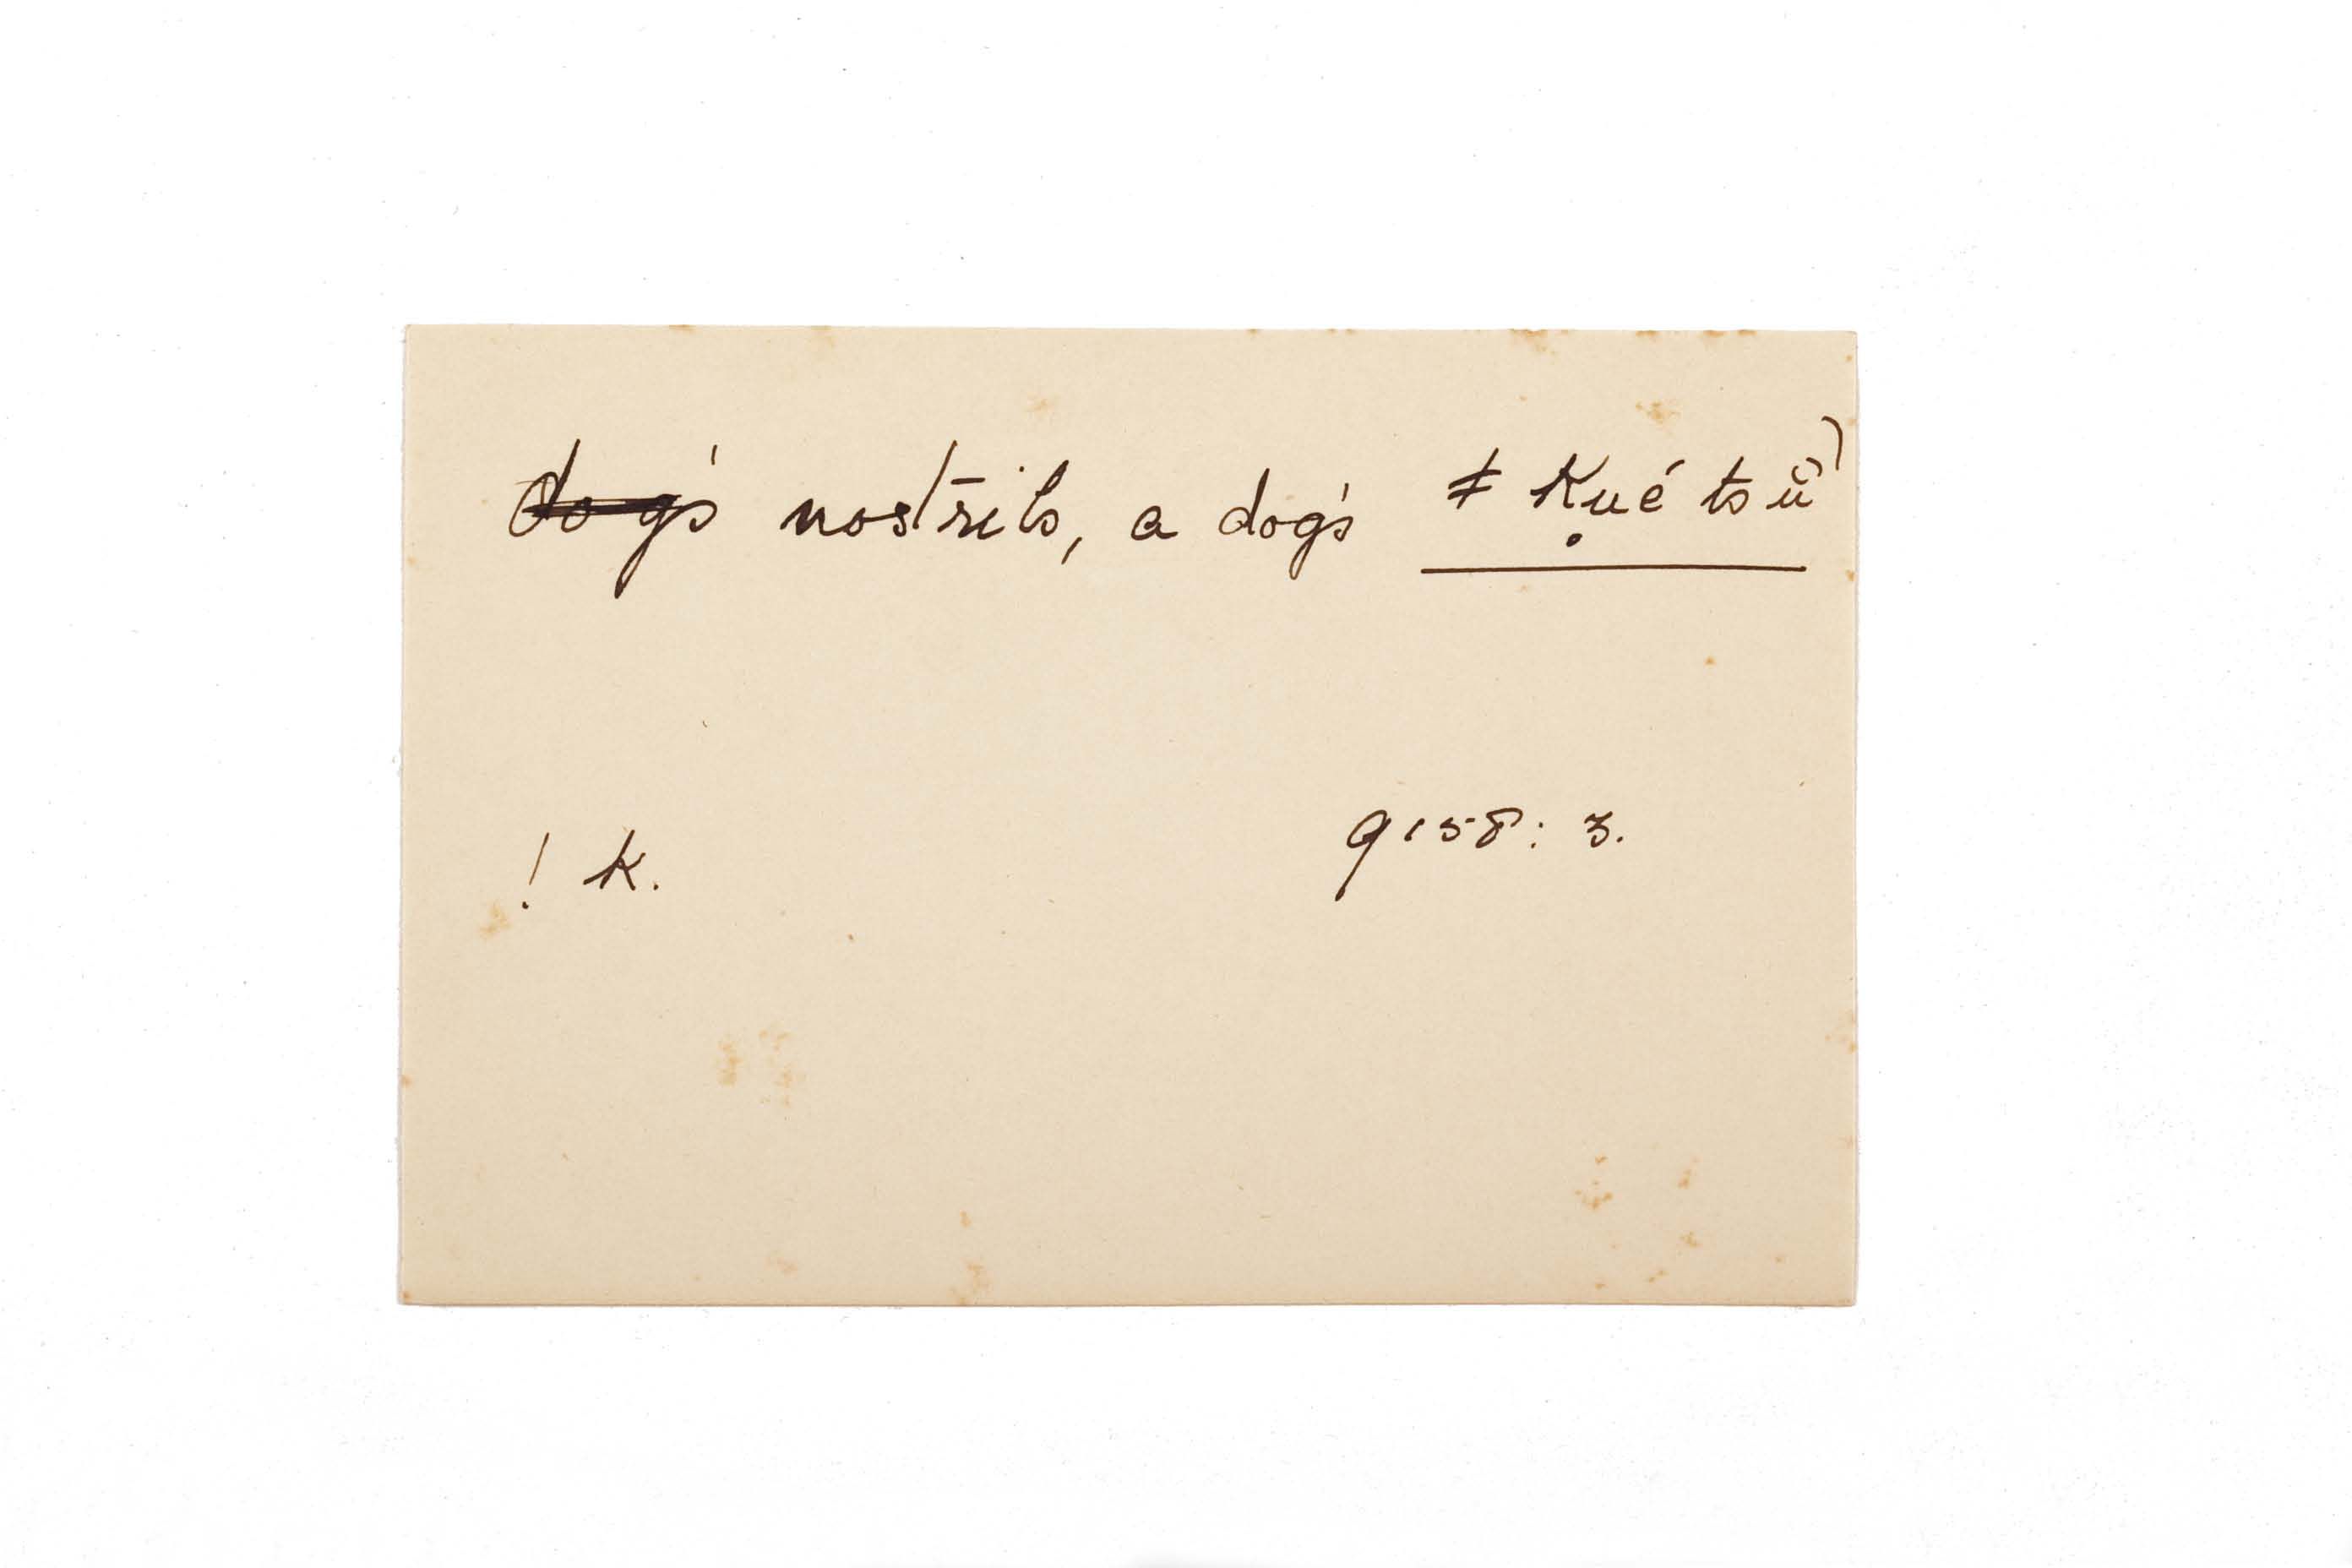 ~~dog's~~ nostrils, a dog's ǂ Ḳué tsŭ̈)
9158: 3.
! k.